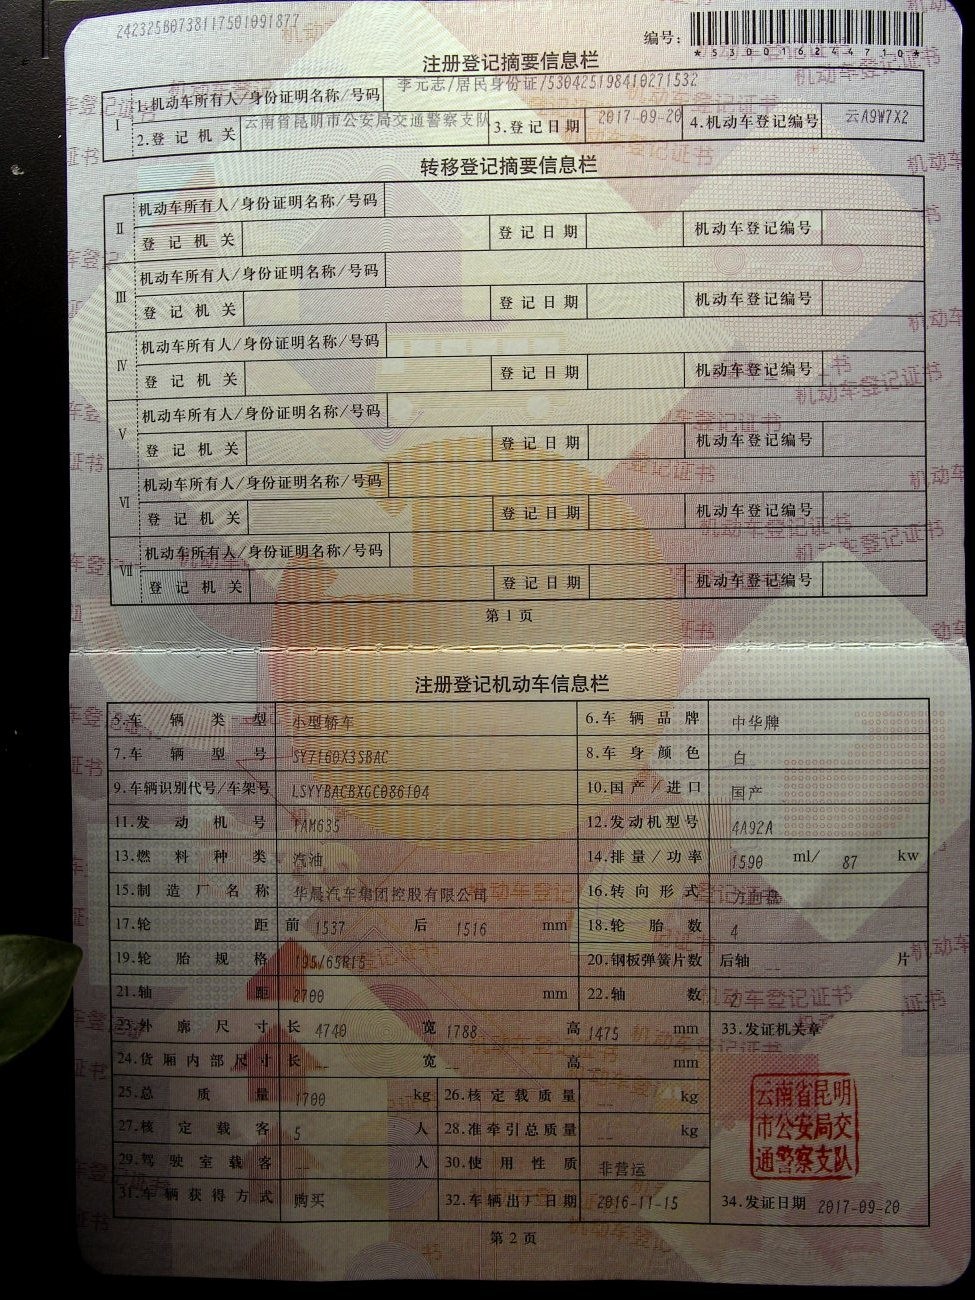 242325B0738117501091877
编号：
*530016244710*
注册登记摘要信息栏
Ⅰ 1.机动车所有人/身份证明名称/号码 李元志/居民身份证/530425198410271532
2.登记机关 云南省昆明市公安局交通警察支队 3.登记日期 2017-09-20 4.机动车登记编号 云A9W7X2
转移登记摘要信息栏
Ⅱ 机动车所有人/身份证明名称/号码
登记机关 登记日期 机动车登记编号
Ⅲ 机动车所有人/身份证明名称/号码
登记机关 登记日期 机动车登记编号
Ⅳ 机动车所有人/身份证明名称/号码
登记机关 登记日期 机动车登记编号
Ⅴ 机动车所有人/身份证明名称/号码
登记机关 登记日期 机动车登记编号
Ⅵ 机动车所有人/身份证明名称/号码
登记机关 登记日期 机动车登记编号
Ⅶ 机动车所有人/身份证明名称/号码
登记机关 登记日期 机动车登记编号
第1页
注册登记机动车信息栏
5.车辆类型 小型轿车 6.车辆品牌 中华牌
7.车辆型号 SY7160X3SBAC 8.车身颜色 白
9.车辆识别代号/车架号 LSYYBACBXGC086104 10.国产/进口 国产
11.发动机号 12.发动机型号 4A92A
13.燃料种类 汽油 14.排量/功率 1590 ml/ 87 kw
15.制造厂名称 华晨汽车集团控股有限公司 16.转向形式 方向盘
17.轮距 前 1537 后 1516 mm 18.轮胎数 4
19.轮胎规格 195/65R15 20.钢板弹簧片数 后轴 -- 片
21.轴距 2700 mm 22.轴数 2
23.外廓尺寸 长 4740 宽 1788 高 1475 mm 33.发证机关章
24.货厢内部尺寸 长 -- 宽 -- 高 -- mm
25.总质量 1700 kg 26.核定载质量 -- kg
27.核定载客 5 人 28.准牵引总质量 -- kg
云南省昆明
市公安局交
通警察支队
29.驾驶室载客 -- 人 30.使用性质 非营运
31.车辆获得方式 购买 32.车辆出厂日期 2016-11-15 34.发证日期 2017-09-20
第2页